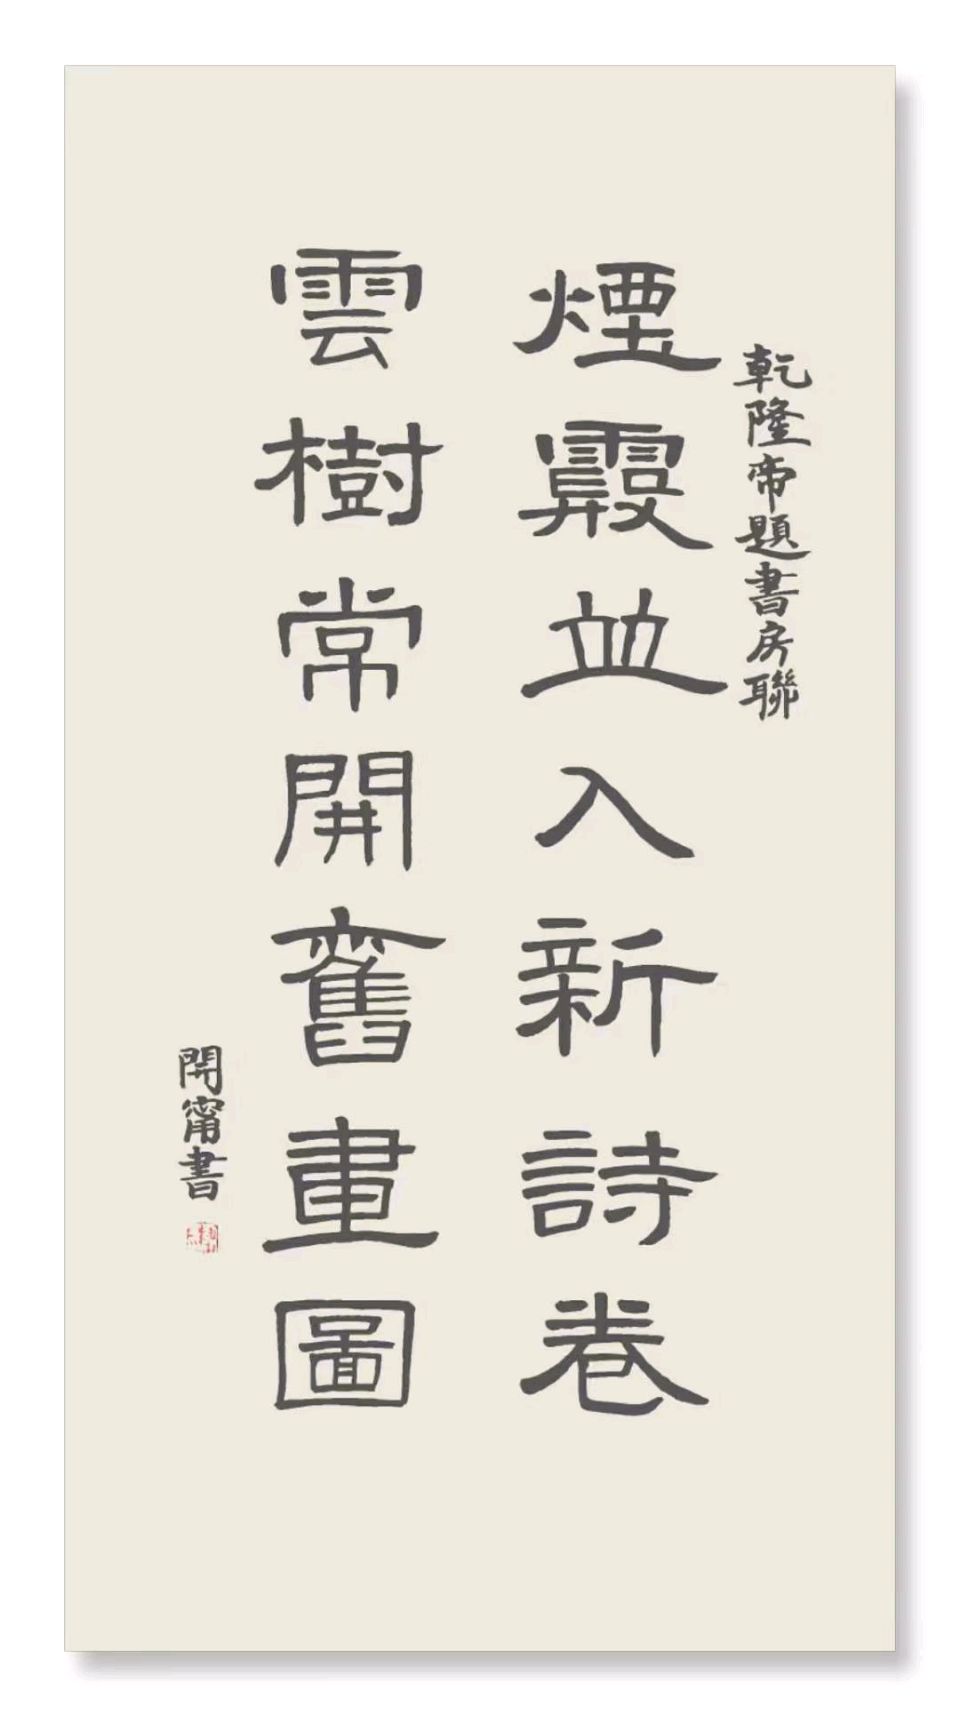 乾隆帝題書房聯
煙霞並入新詩卷
雲樹常開舊畫圖
開甯書